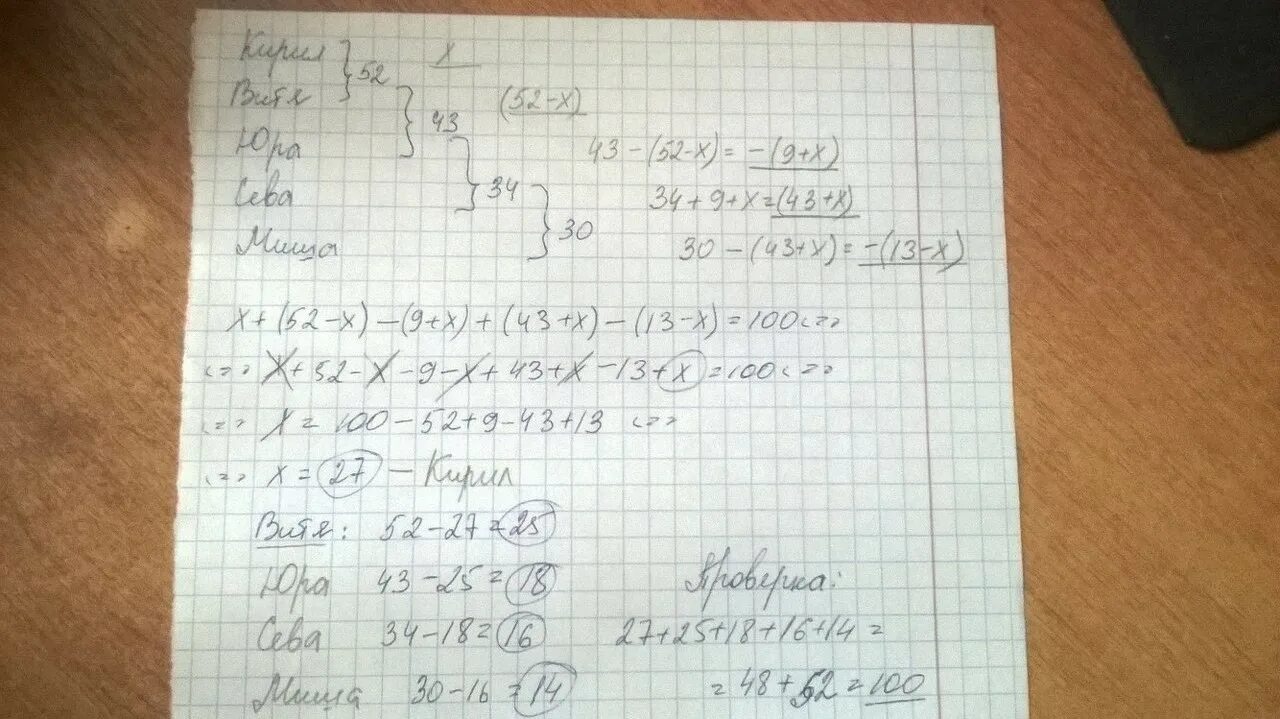 Кирил } 52 x
Витя (52-x)
} 43
Юра 43-(52-x)=-(9+x)
Сева } 34 34+9+x=(43+x)
Миша } 30 30-(43+x)=-(13-x)
x+(52-x)-(9+x)+(43+x)-(13-x)=100<=>
<=> x+52-x-9-x+43+x-13+x=100<=>
<=> x=100-52+9-43+13 <=>
<=> x=27 - Кирил
Витя: 52-27=25
Юра 43-25=18 Проверка:
Сева 34-18=16 27+25+18+16+14=
Миша 30-16=14 =48+52=100